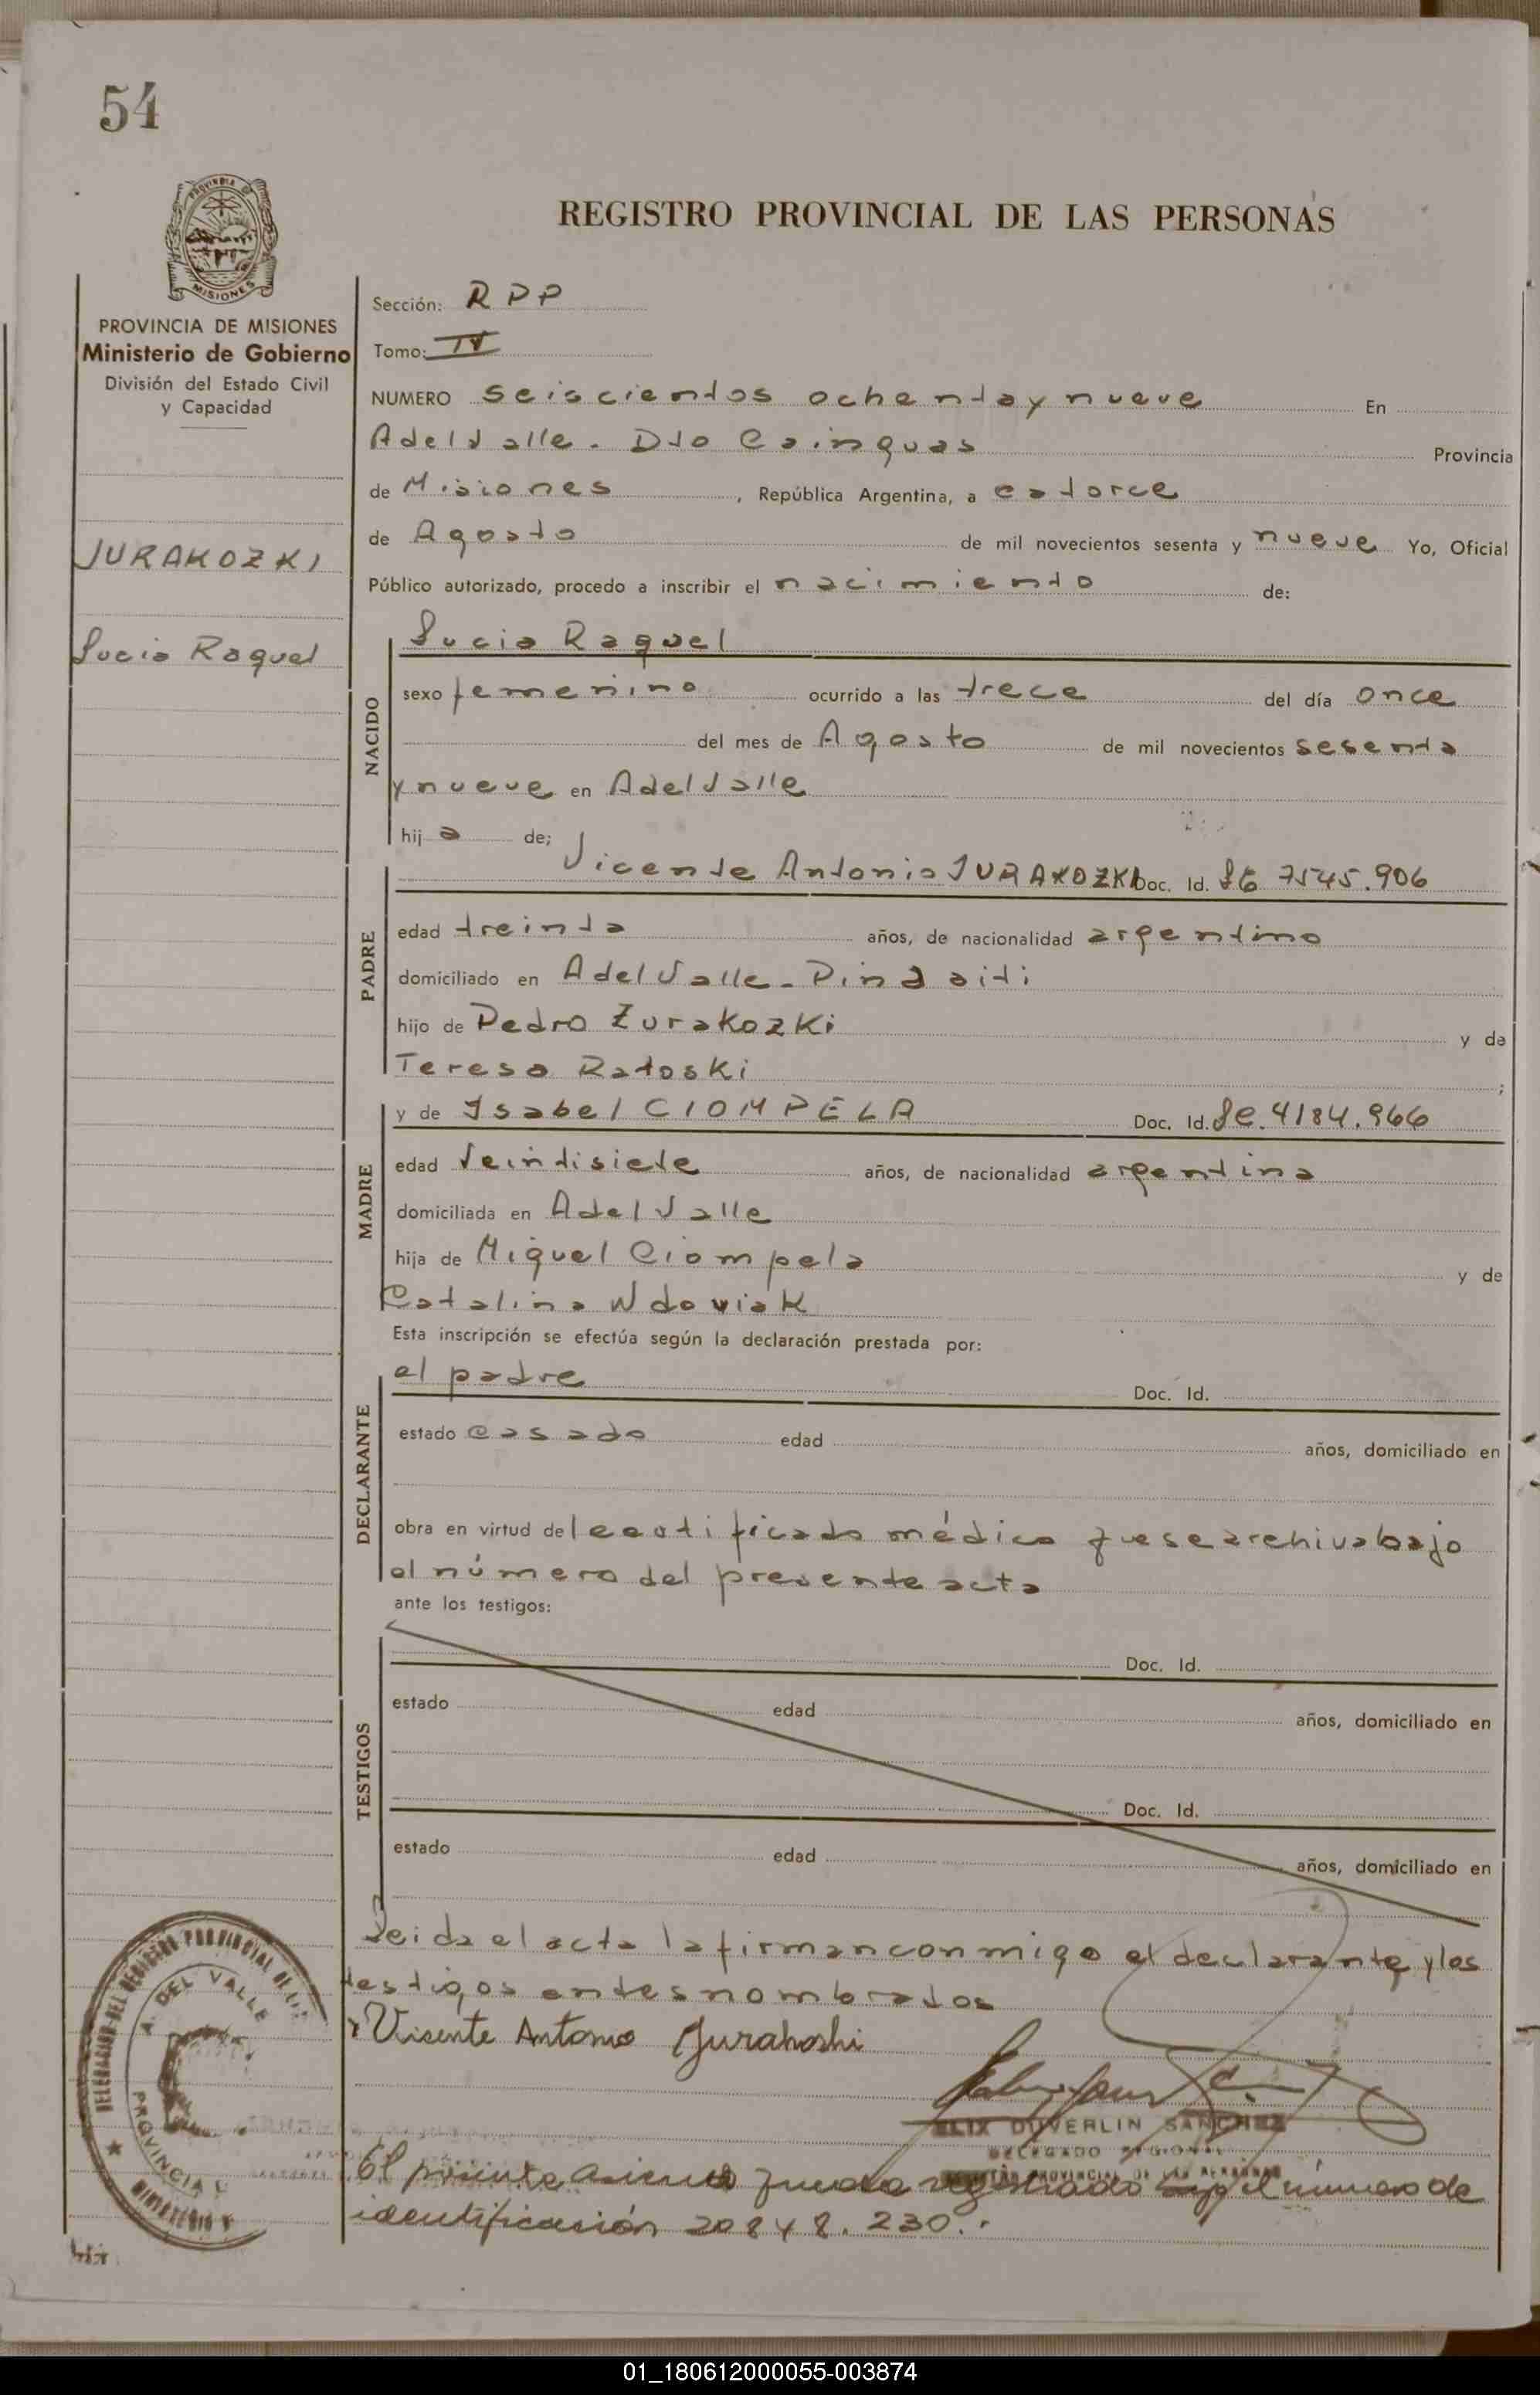 54
REGISTRO PROVINCIAL DE LAS PERSONAS
PROVINCIA DE MISIONES
Ministerio de Gobierno
División del Estado Civil
y Capacidad
JURAKOZKI
Lucia Raquel
Sección: R P P
Tomo: IV
NUMERO seiscientos ochenta y nueve En
A del Valle - Dto Cainguas Provincia
de Misiones, República Argentina, a catorce
de Agosto de mil novecientos sesenta y nueve Yo, Oficial
Público autorizado, procedo a inscribir el nacimiento de:
NACIDO
Lucia Raquel
sexo femenino ocurrido a las trece del día once
del mes de Agosto de mil novecientos sesenta
y nueve en A del Valle
hija de;
PADRE
Vicente Antonio JURAKOZKI Doc. Id. 7545.906
edad treinta años, de nacionalidad argentino
domiciliado en A del Valle - Pindaiti
hijo de Pedro Zurakozki y de
Teresa Ratoski ;
MADRE
y de Isabel CIOMPELA Doc. Id. 4184.966
edad Veintisiete años, de nacionalidad argentina
domiciliada en A del Valle
hija de Miguel Ciompela y de
Catalina Wdoviak
Esta inscripción se efectúa según la declaración prestada por:
DECLARANTE
el padre Doc. Id.
estado casado edad años, domiciliado en
obra en virtud del certificado médico que se archiva bajo
el número del presente acta
ante los testigos:
TESTIGOS
Doc. Id.
estado edad años, domiciliado en
Doc. Id.
estado edad años, domiciliado en
Leida el acta la firman conmigo el declarante y los
testigos antes nombrados
Visente Antonio Jurakoski
FELIX DUVERLIN SANCHEZ
DELEGADO REGIONAL
REGISTRO PROVINCIAL DE LAS PERSONAS
El presente asiento queda registrado bajo el número de
identificación 20848.230.-
A. DEL VALLE
PROVINCIAL
01_180612000055-003874